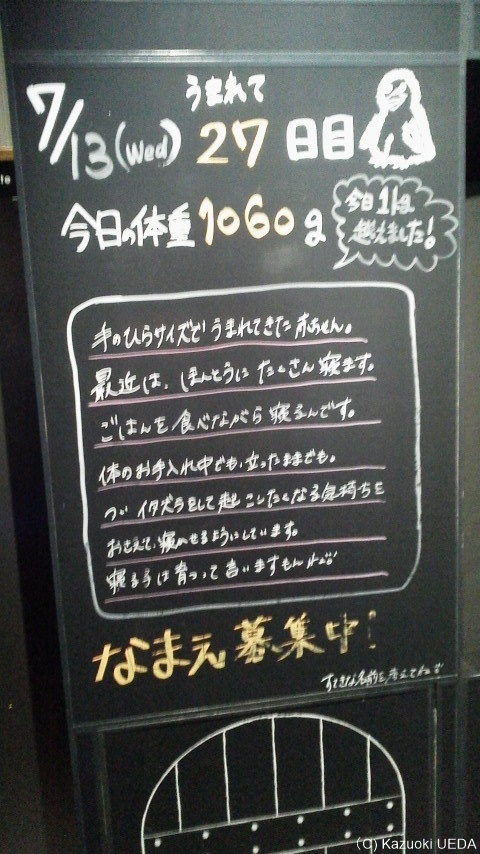 うまれて
7/13(Wed) 27日目
今日の体重1060g
今日1kg
越えました!
手のひらサイズでうまれてきた赤ちゃん。
最近は、ほんとうにたくさん寝ます。
ごはんを食べながら寝るんです。
体のお手入れ中でも、立ったままでも。
つい イタズラをして起こしたくなる気持ちを
おさえて、寝かせるようにしています。
寝る子は育つって言いますもんね
なまえ募集中!
すてきな名前を考えてね
(C) Kazuoki UEDA